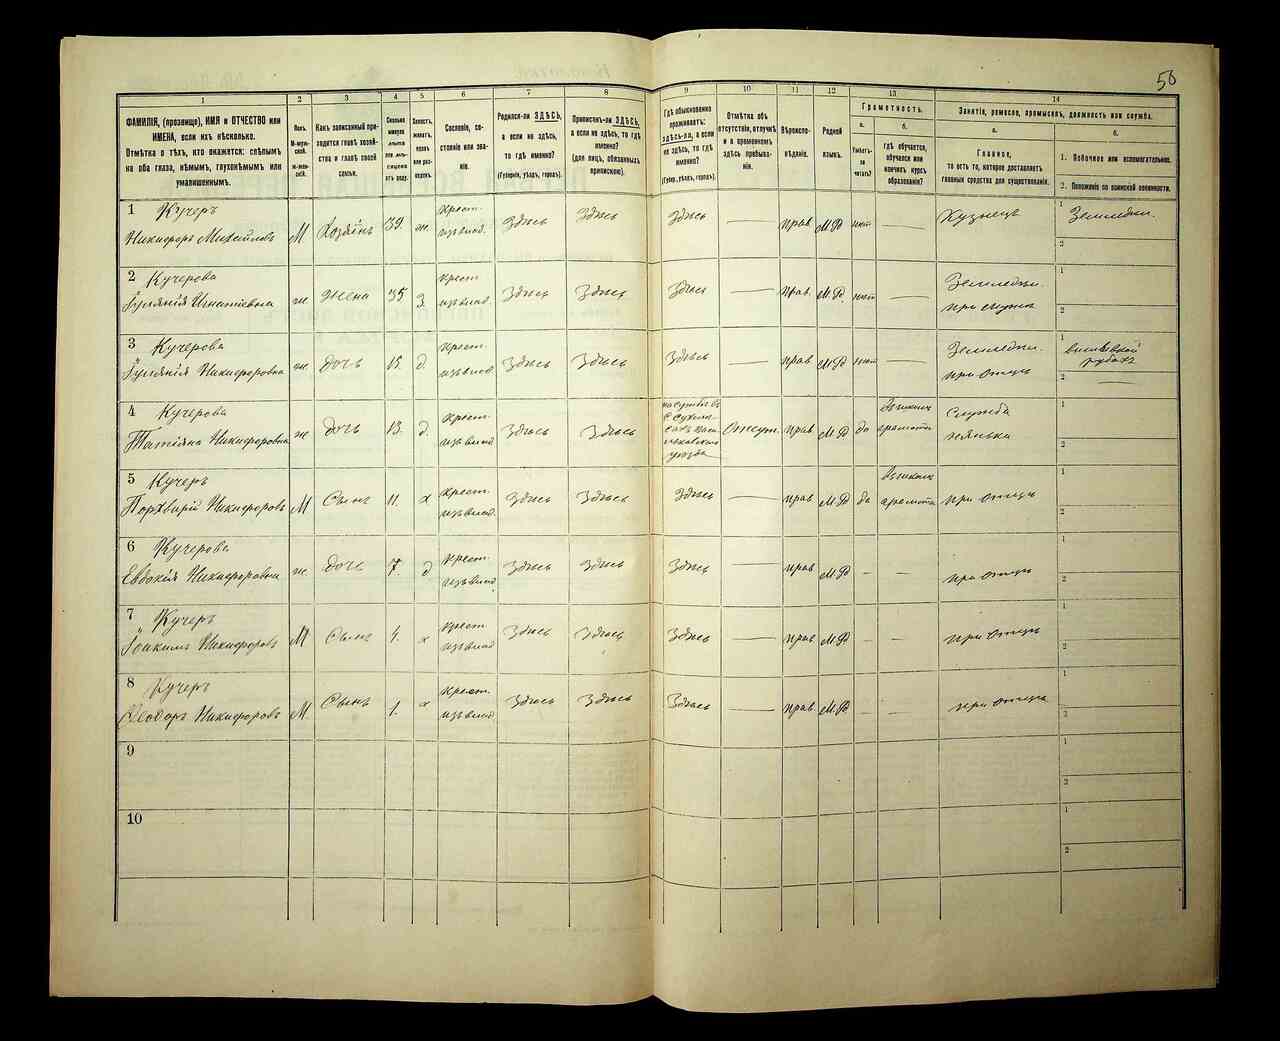 50
1
2
3
4
5
6
7
8
9
10
11
12
13
14
ФАМИЛІЯ, (прозвище), ИМЯ и ОТЧЕСТВО или
ИМЕНА, если ихъ нѣсколько.
Отмѣтка о тѣхъ, кто окажется: слѣпымъ
на оба глаза, нѣмымъ, глухонѣмымъ или
умалишеннымъ.
Полъ.
М-мужской.
Ж-женскій.
Какъ записанный при-
ходится главѣ хозяй-
ства и главѣ своей
семьи.
Сколько
минуло
лѣтъ
или мѣ-
сяцевъ
отъ роду.
Холостъ,
женатъ,
вдовъ
или раз-
веденъ.
Сословіе, со-
стояніе или зва-
ніе.
Родился-ли ЗДѢСЬ,
а если не здѣсь,
то гдѣ именно?
(Губернія, уѣздъ, городъ).
Приписанъ-ли ЗДѢСЬ,
а если не здѣсь, то гдѣ
именно?
(для лицъ, обязанныхъ
припискою).
Гдѣ обыкновенно
проживаетъ:
здѣсь-ли, а если
не здѣсь, то гдѣ
именно?
(Губер., уѣздъ, городъ).
Отмѣтка объ
отсутствіи, отлучкѣ
и о временномъ
здѣсь пребыва-
ніи.
Вѣроиспо-
вѣданіе.
Родной
языкъ.
Грамотность.
а.
Умѣетъ-ли
читать?
б.
гдѣ обучается,
обучался или
кончилъ курсъ
образованія?
Занятіе, ремесло, промыселъ, должность или служба.
а.
Главное,
то есть то, которое доставляетъ
главныя средства для существованія.
б.
1. Побочное или вспомогательное.
2. Положеніе по воинской повинности.
1 Кучеръ
Никифоръ Михайловъ М Хозяинъ 39. ж. Крест. Здѣсь Здѣсь Здѣсь — прав М.Р нѣт — Кузнецъ 1 Земледѣл.
2
2 Кучерова
Игнатіевна ж жена 35 З Крест Здѣсь Здѣсь Здѣсь — прав. М.Р. нѣт — Земледѣл.
при мужѣ
1
2
3 Кучерова
Никифоровна ж дочь 15. д. Крест. Здѣсь Здѣсь Здѣсь — прав М.Р нѣт — Земледѣл.
при отцѣ
1
2 —
4 Кучерова
Татіяна Никифоровна ж дочь 13. д Крест. Здѣсь Здѣсь на службѣ въ
уѣзда
Отсут. прав М.Р да грамотѣ Служба
нянька
1
2
5 Кучеръ
Никифоровъ М Сынъ 11. х Крест. Здѣсь Здѣсь Здѣсь — прав М.Р да грамотѣ при отцѣ
1
2
6 Кучерова
Евдокія Никифоровна ж дочь 7. д Крест. Здѣсь здѣсь Здѣсь — прав М.Р - - при отцѣ
1
2
7 Кучеръ
Іоакимъ Никифоровъ М Сынъ 4. х Крест. Здѣсь Здѣсь Здѣсь — прав М.Р - - при отцѣ
1
2
8 Кучеръ
Ѳеодоръ Никифоровъ М. Сынъ 1. х Крест. Здѣсь Здѣсь Здѣсь — прав. М.Р - - при отцѣ
1
2
9
1
2
10
1
2